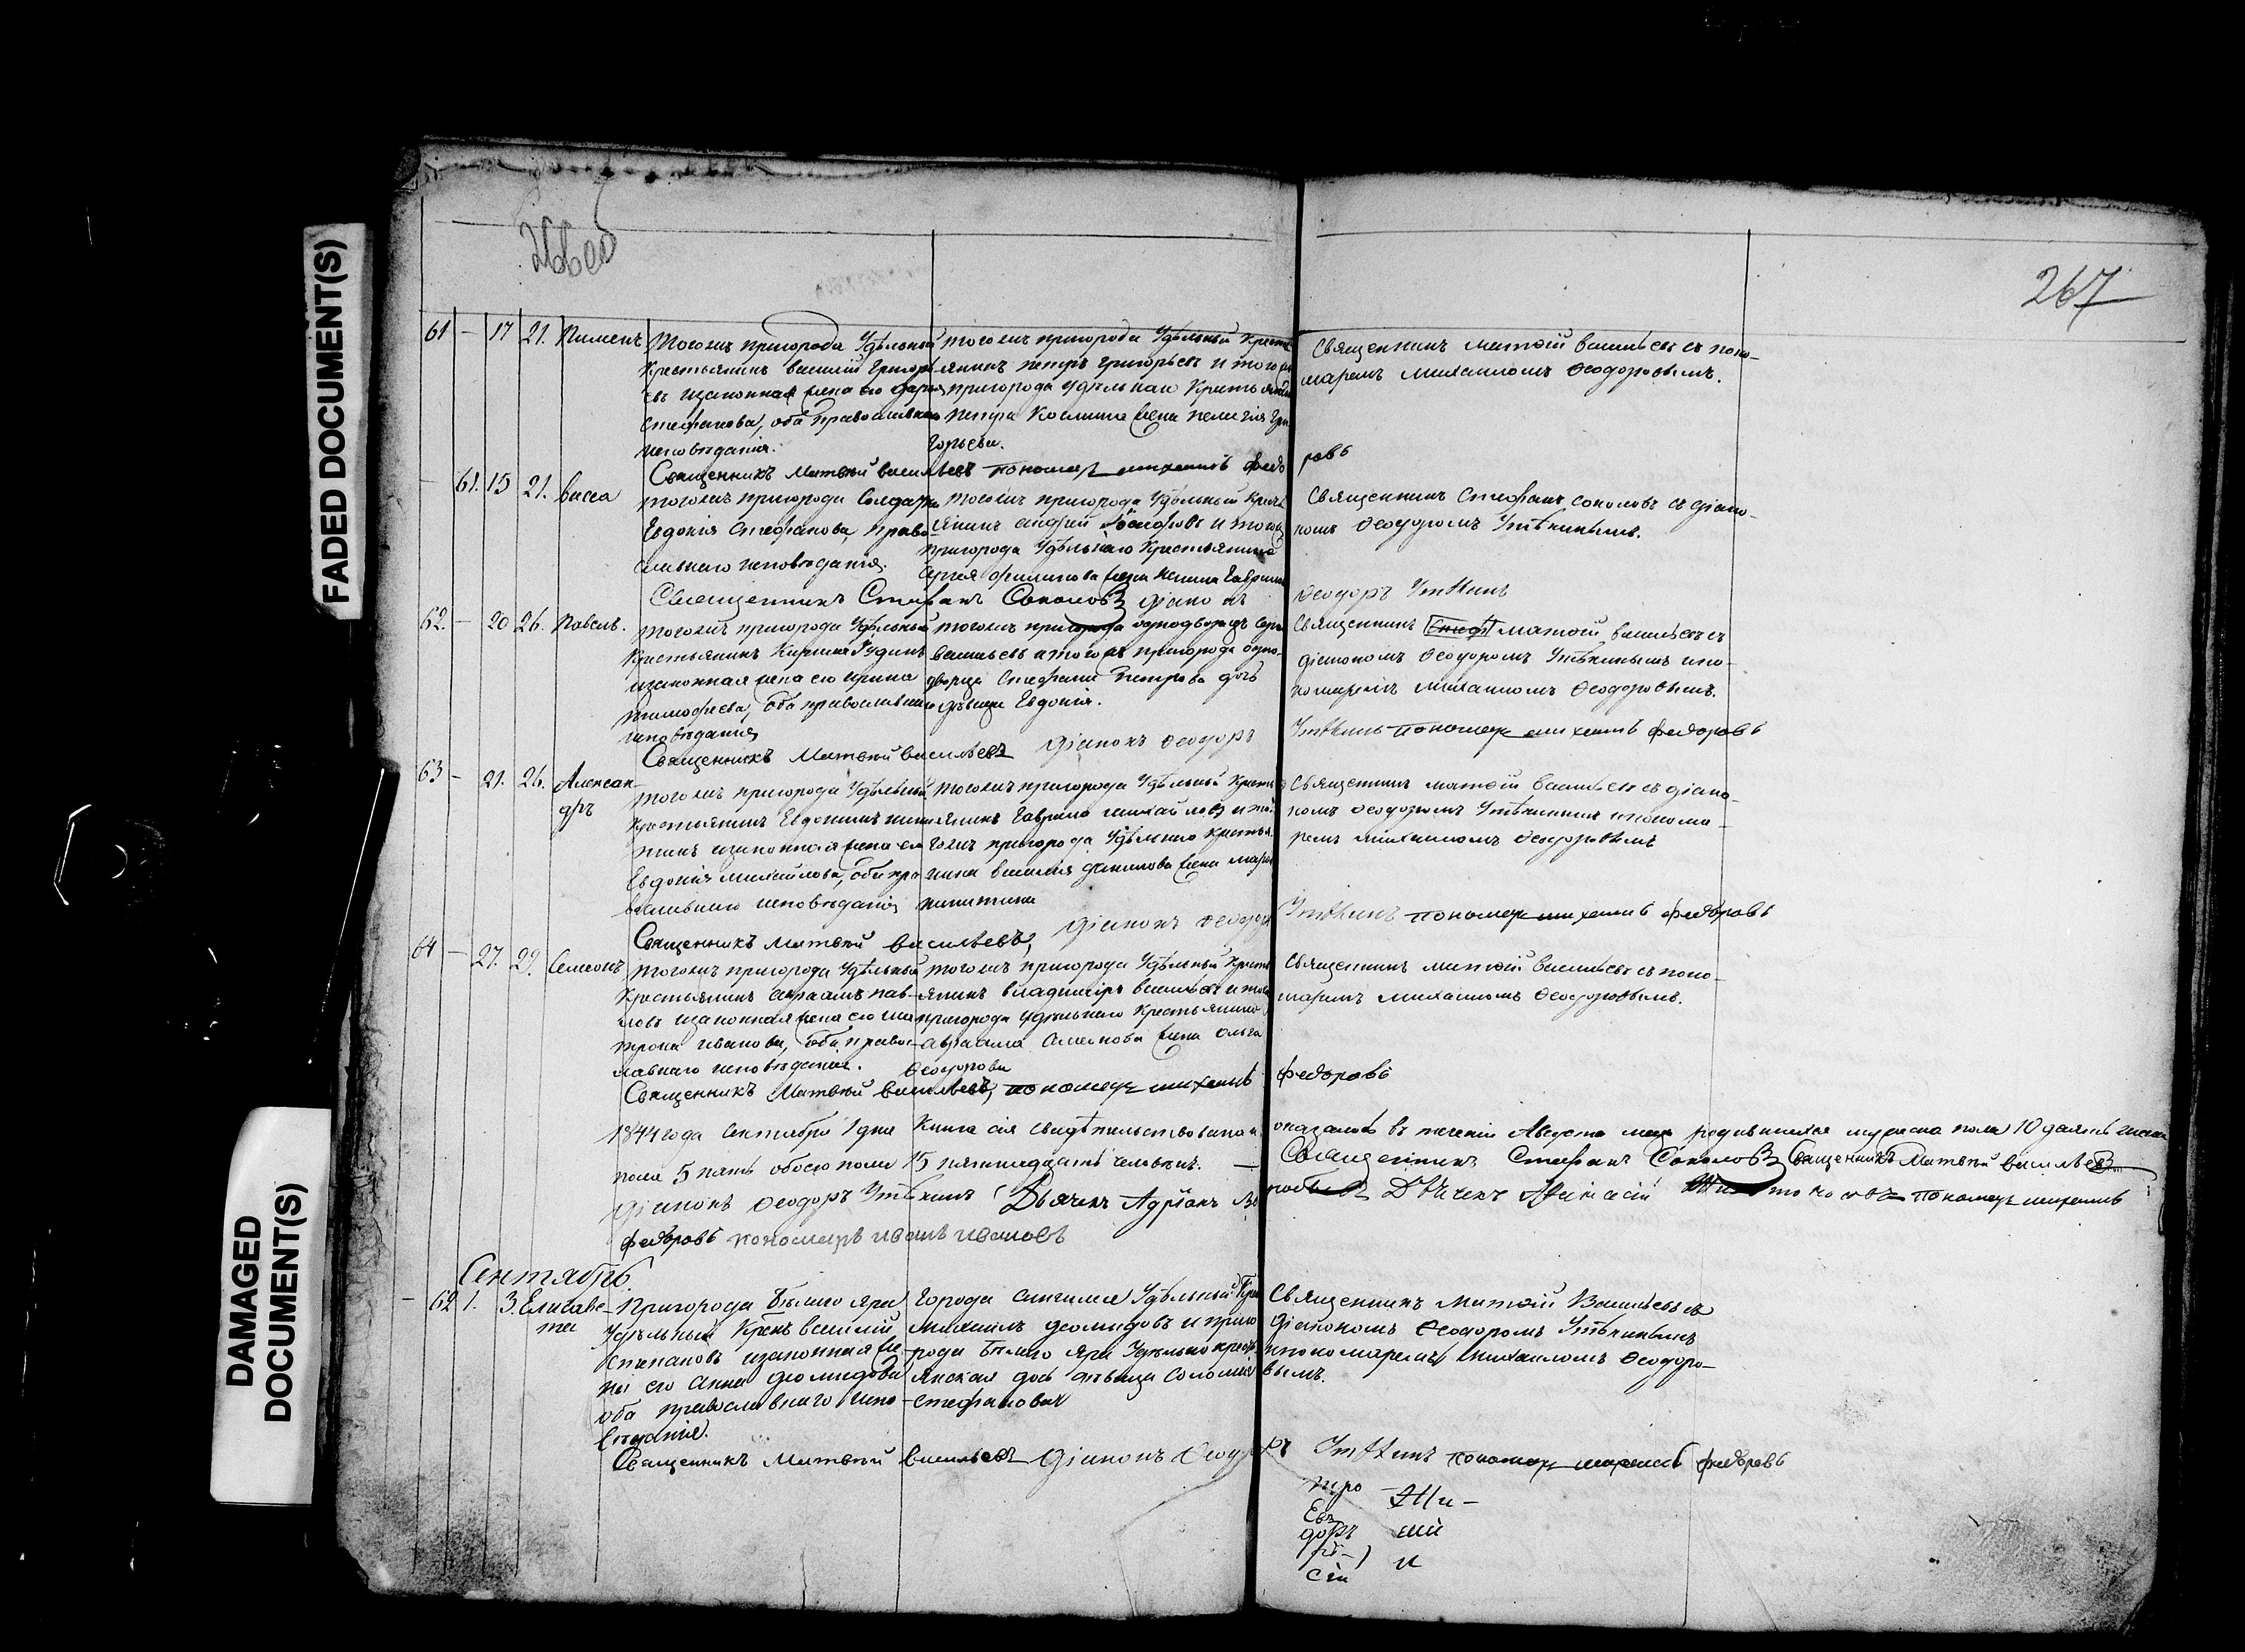 FADED DOCUMENT(S)
DAMAGED DOCUMENT(S)
267
61 — 17 21. Пименъ
Тогожъ пригорода Удѣльный
Крестьянинъ Василій Григорь
евъ изаконная жена его Дарья
Стефанова, оба православнаго
исповѣданія.
тогожъ пригорода Удѣльный Кресть
янинъ Петръ Григорьевъ и того же
пригорода удѣльнаго Крестьянина
Петра Космина жена Пелагія Гри
горьева.
Священникъ Матѳій Васильевъ съ поно-
маремъ Михаиломъ Ѳеодоровымъ.
Священникъ Матвѣй Васильевъ пономарь михаилъ федо ровъ
— 61. 15 21. Васса
тогожъ пригорода Солдатка
Евдокія Стефанова, право-
славнаго исповѣданія.
Тогожъ пригорода Удѣльный Кресть
янинъ Андрей и тогожъ
пригорода Удѣльнаго Крестьянина
Сергея Филипова жена Гаврила
Священникъ Стефанъ Соколовъ съ діако-
номъ Ѳеодоромъ Утѣкинымъ.
Священникъ Стефанъ Соколовъ діаконъ Ѳеодоръ Утѣкинъ
62. — 20 26. Павелъ.
тогожъ пригорода Удѣльный
Крестьянинъ Кирила Гудинъ
изаконная жена его Ирина
Тимофеева, оба православнаго
исповѣданія
тогожъ пригорода однодворецъ
Васильевъ итогожъ пригорода одно-
дворца Стефана Петрова дочь
дѣвица Евдокія.
Священникъ Матѳій Васильевъ съ
діакономъ Ѳеодоромъ Утѣкинымъ ипо-
номаремъ Михаиломъ Ѳеодоровымъ.
Священникъ Матвѣй Васильевъ діаконъ Ѳеодоръ Утѣкинъ пономарь михаилъ федоровъ
63 — 21. 26. Александръ
тогожъ пригорода Удѣльный
Крестьянинъ Евдокимъ Ники
тинъ изаконная жена его
Евдокія Михайлова, оба пра
вославнаго исповѣданія
тогожъ пригорода Удѣльный Кресть
янинъ Гаврило Михайловъ и то
гожъ пригорода Удѣльнаго Крестья
нина Василія Данилова жена Марья
Никитина
Священникъ Матѳій Васильевъ съ діако-
номъ Ѳеодоромъ Утѣкинымъ ипонома-
ремъ Михаиломъ Ѳеодоровымъ
Священникъ Матвѣй Васильевъ, діаконъ Ѳеодоръ Утѣкинъ пономарь михаилъ федоровъ
64 — 27. 29. Симеонъ
тогожъ пригорода Удѣльный
Крестьянинъ Авраамъ Пав-
ловъ изаконная жена его Ма
трона Иванова, оба правос-
лавнаго исповѣданія.
тогожъ пригорода Удѣльный Кресть
янинъ Владимиръ Васильевъ и того
пригорода Удѣльнаго Крестьянина
Авраама Семенова жена Ольга
Ѳеодорова
Священникъ Матѳій Васильевъ съ поно-
маремъ Михаиломъ Ѳеодоровымъ.
Священникъ Матвѣй Васильевъ, пономарь михаилъ федоровъ
1844 года Сентября 1 дня Книга сія свидѣтельствована и оказалось въ теченіи Августа родившихся мужеска пола 10 десять
пола 5 пять обоего пола 15 пятнадцать человѣкъ. — Священникъ Стефанъ Соколовъ Священникъ Матвѣй Васильевъ
діаконъ Ѳеодоръ Утѣкинъ Дьячекъ Адріанъ Дьячекъ Афанасій пономарь михаилъ
федоровъ пономарь иванъ ивановъ
Сентябрь
— 62 1. 3. Елисаве-
та
Пригорода Бѣлаго Яра
Удѣльный Крест. Василій
Степановъ изаконная же-
на его Анна Диомидова
оба православнаго испо-
вѣданія.
Города Удѣльный Кре
Михаилъ Деомидовъ и приго
рода Бѣлаго Яра Удѣльно крест
янская дочь дѣвица Соломея
Стефанова
Священникъ Матѳій Васильевъ съ
Діакономъ Ѳеодоромъ Утѣкинымъ
ипономаремъ Михаиломъ Ѳеодоро-
вымъ.
Священникъ Матвѣй Васильевъ Діаконъ Ѳеодоръ Утѣкинъ пономарь михаилъ федоровъ